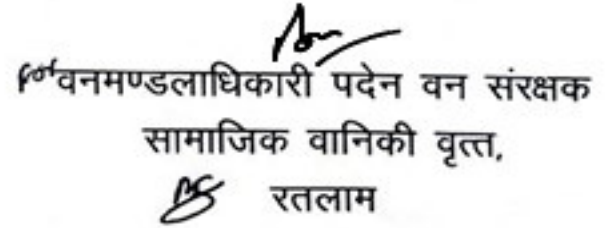 for वनमण्डलाधिकारी पदेन वन संरक्षक
सामाजिक वानिकी वृत्त,
रतलाम